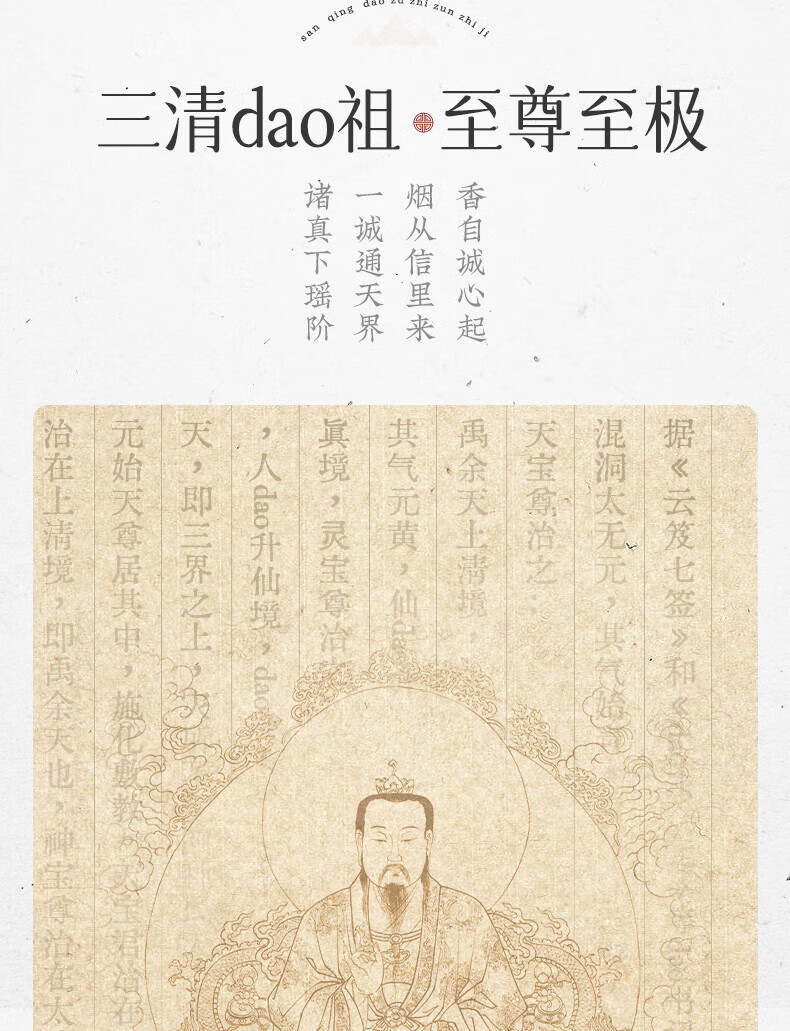 san qing dao zu zhi zun zhi ji
三清dao祖·至尊至极
香自诚心起
烟从信里来
一诚通天界
诸真下瑶阶
据《云笈七签》和《
混洞太无元，其气始
天宝尊治之；
禹余天上清境，
其气元黄，仙dao
真境，灵宝尊治
，人dao升仙境，dao
天，即三界之上，
元始天尊居其中，施化敷教。天宝君治在
治在上清境，即禹余天也，神宝尊治在太